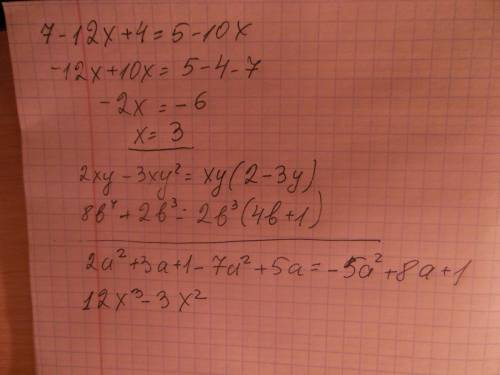 7 - 12x + 4 = 5 - 10x
-12x + 10x = 5 - 4 - 7
-2x = -6
x = 3
2xy - 3xy² = xy(2 - 3y)
8b⁴ + 2b³ = 2b³(4b + 1)
2a² + 3a + 1 - 7a² + 5a = -5a² + 8a + 1
12x³ - 3x²